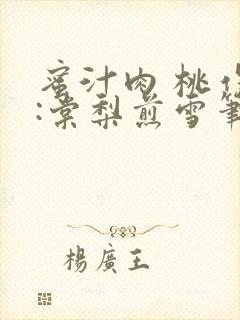 蜜汁肉桃
:棠梨煎雪筆
楊廣王